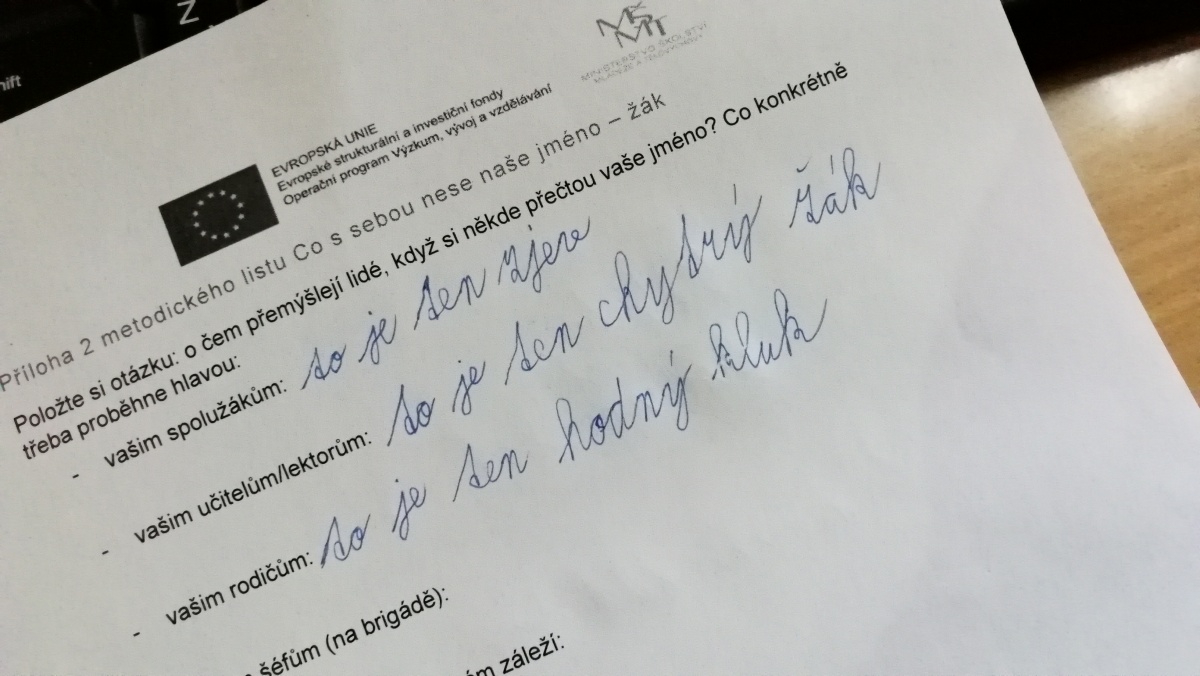 Z
hift
MŠMT
MINISTERSTVO ŠKOLSTVÍ
MLÁDEŽE A TĚLOVÝCHOVY
EVROPSKÁ UNIE
Evropské strukturální a investiční fondy
Operační program Výzkum, vývoj a vzdělávání
Příloha 2 metodického listu Co s sebou nese naše jméno – žák
Položte si otázku: o čem přemýšlejí lidé, když si někde přečtou vaše jméno? Co konkrétně
třeba proběhne hlavou:
- vašim spolužákům: to je ten zjeve
- vašim učitelům/lektorům: to je ten chytrý žák
- vašim rodičům: to je ten hodný kluk
šéfům (na brigádě):
ém záleží: